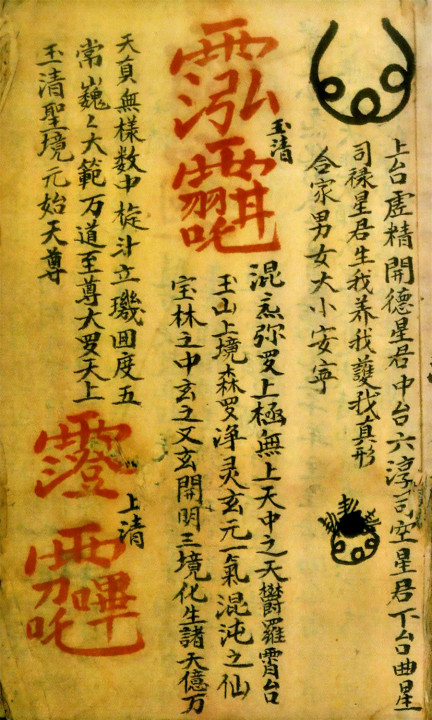 上台虚精開德星君中台六淳司空星君下台曲星
司禄星君生我养我護我真形
合家男女大小安寧
玉清
混弥罗上極無上天中之天欝羅霄台
玉山上境森罗浄灵玄元一氣混沌之仙
宝林之中玄之又玄開明三境化生諸天億万
天真無様数中旋汁立璣囬度五
常巍々大範万道至尊大罗天上
玉清聖境元始天尊
上清